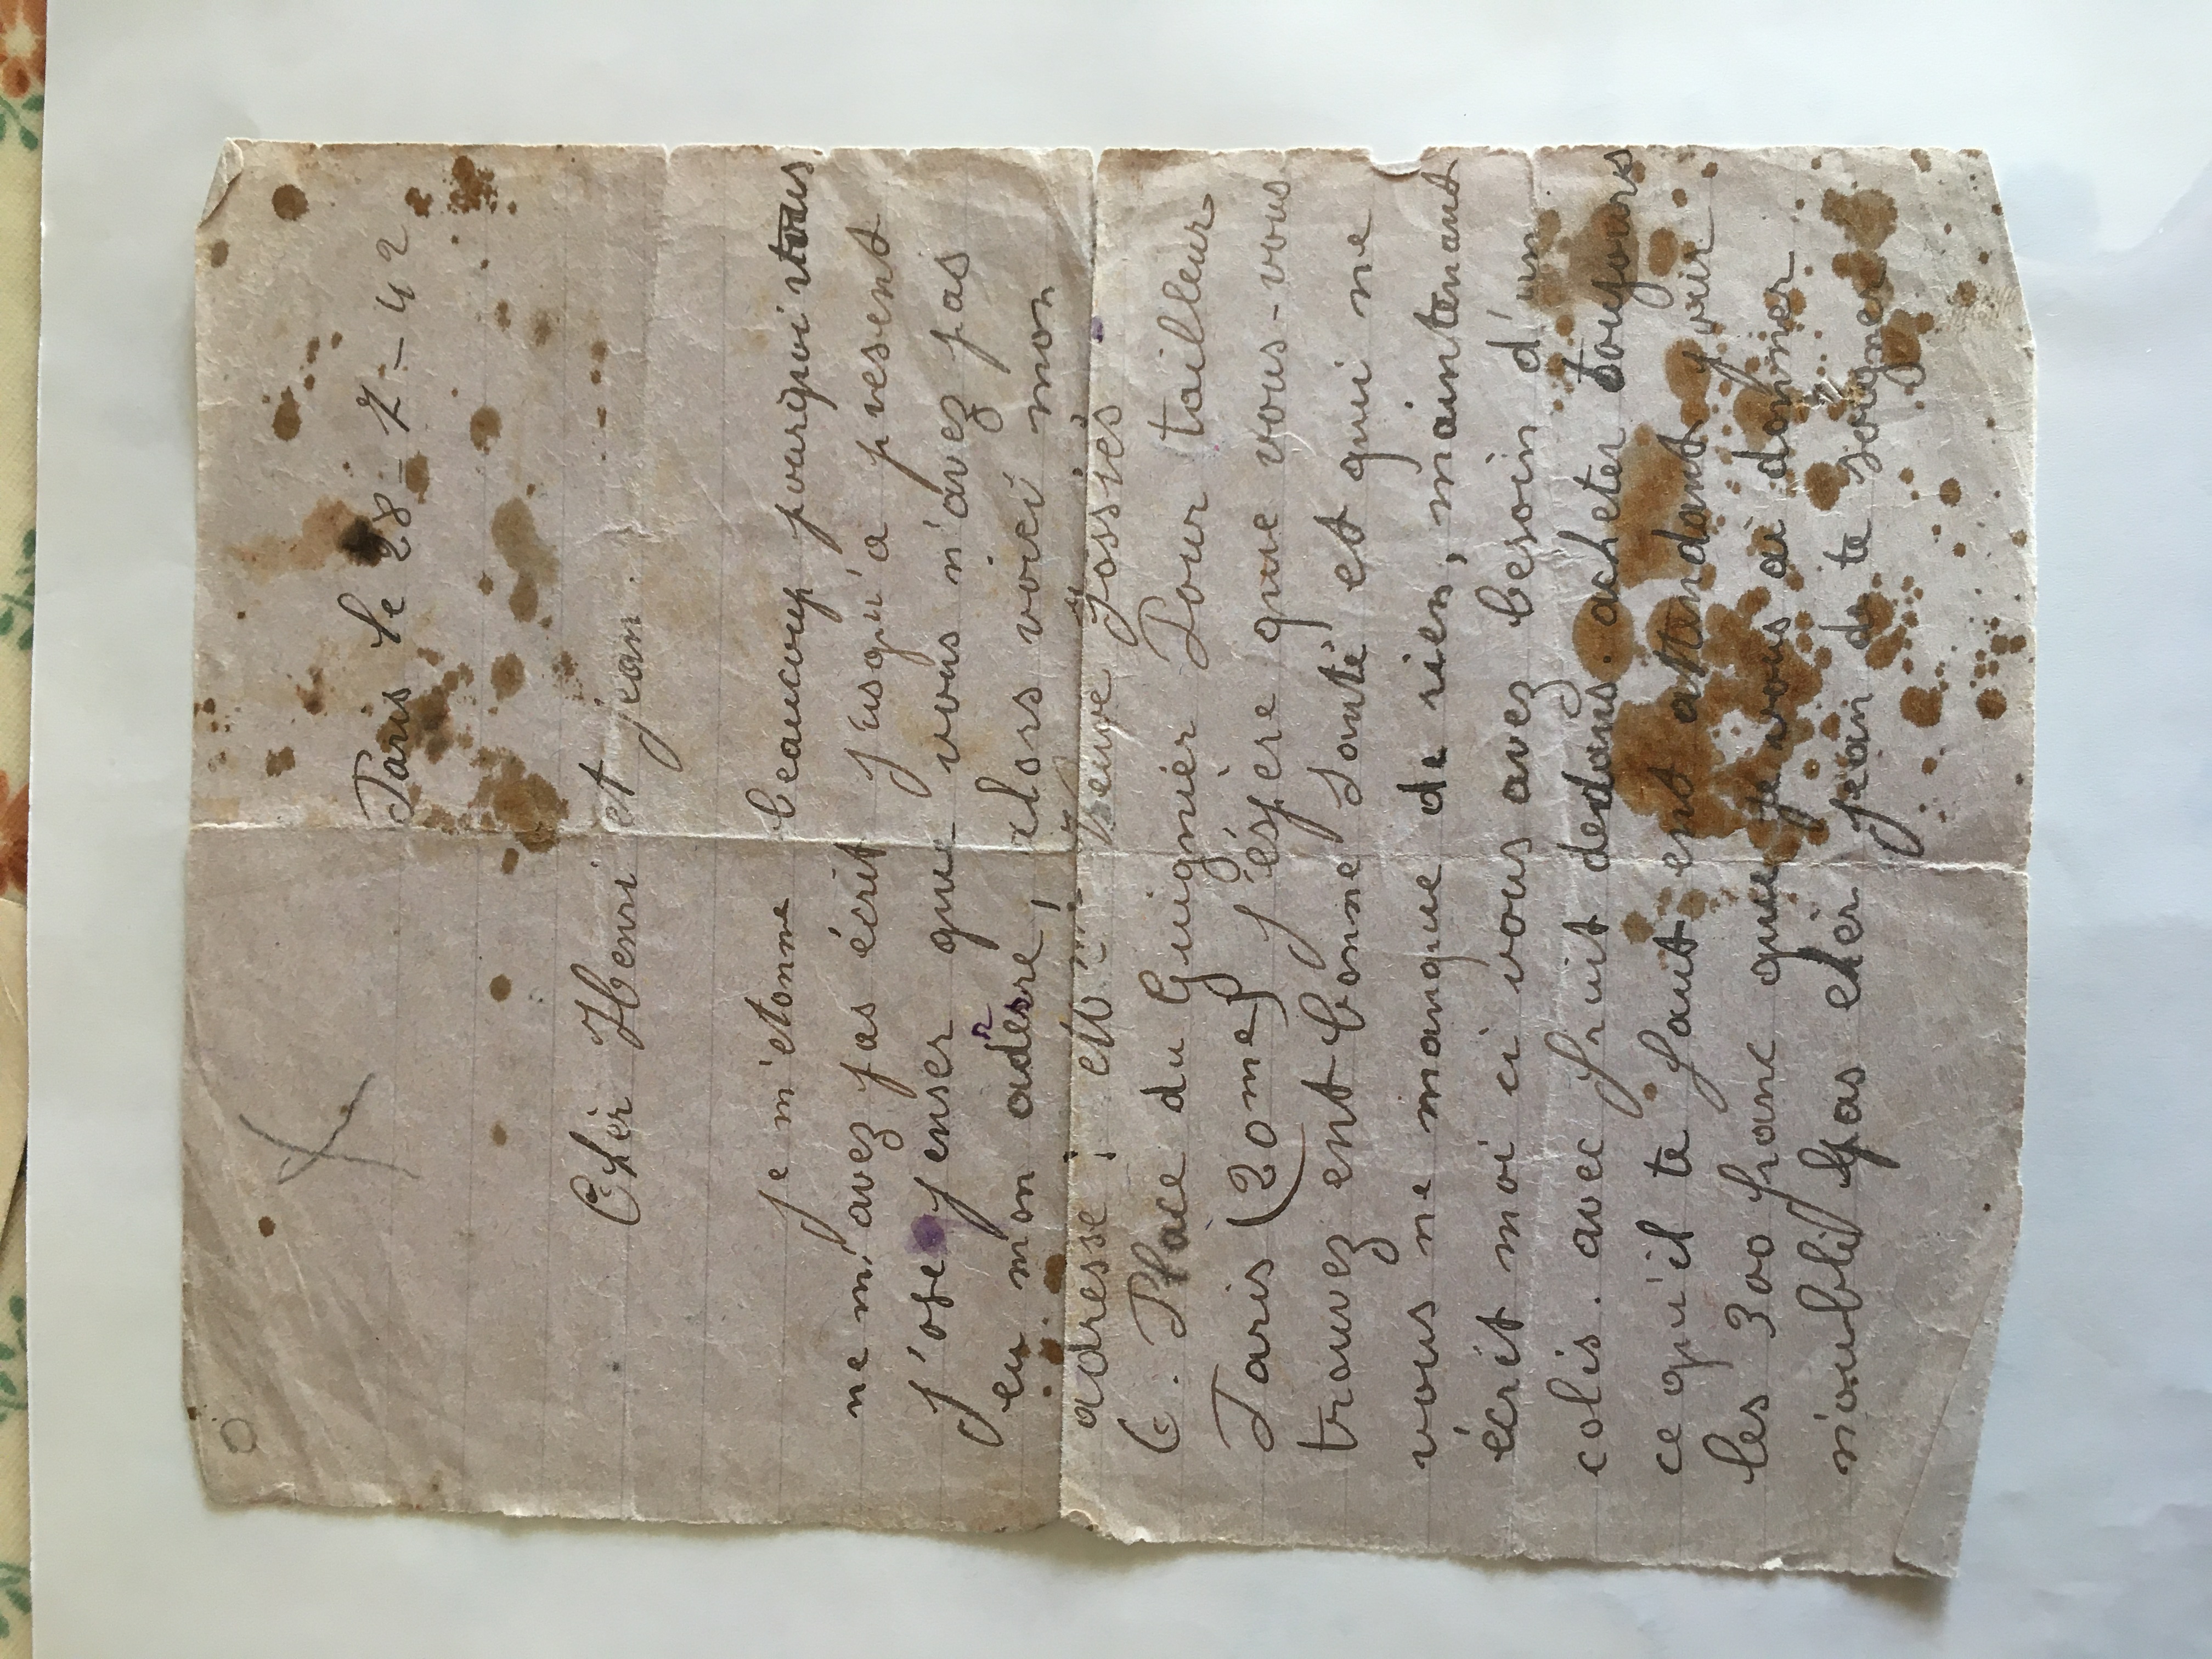 Paris le 28-7-42
Chèr Henri et jean.
je m'etonne beaucoup pourquoi vous
ne m'avez pas écrit jusqu'a present
j'ose penser que vous n'avez pas
eu mon adrerre, alors voici mon
adresse : Mme Veuve Jossiés
6. Place du Guigniér Pour tailleur
Paris (20me) j'éspère que vous-vous
trouvez ent bonne Santé et qui ne
vous ne manque de rien, maintenant
écrit moi ci vous avez besoin d'un
colis. avec fruit dedans. acheter toujours
ce qu'il te faut ent attendant pour
les 300 franc que je vous ai donner
n'oubli pas chèr jean de te soigner